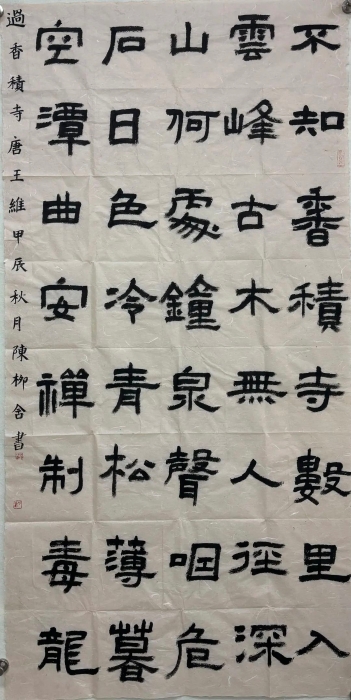 不知香積寺數里入
雲峰古木無人徑深
山何處鐘泉聲咽危
石日色冷青松薄暮
空潭曲安禪制毒龍
過香積寺唐王維甲辰秋月陳柳舍書